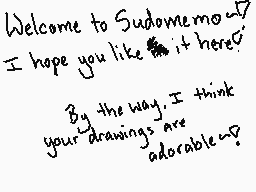 Welcome to Sudomemo~♡
I hope you like it here♡
By the way, I think
your drawings are
adorable~♡